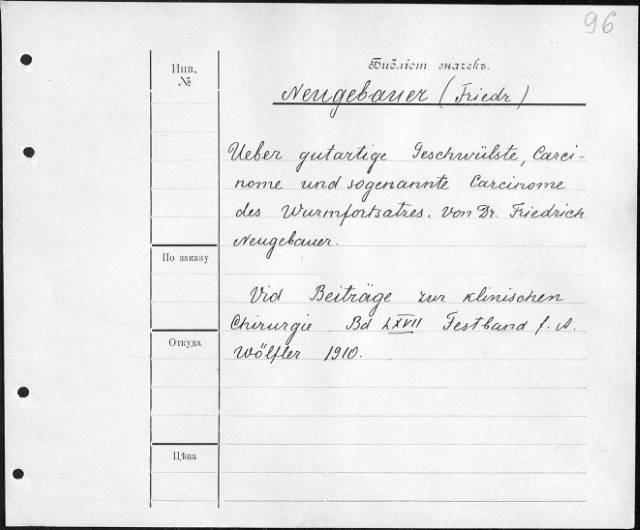 96
Инв.
№
Библіот. значекъ.
Neugebauer (Friedr)
Ueber gutartige Geschwülste, Carci-
nome und sogenannte Carcinome
des Wurmfortsatzes. Von Dr. Friedrich
Neugebauer.
По заказу
Vid Beiträge zur klinischen
Chirurgie Bd LXVII Festband f. A.
Откуда
Wölfler 1910.
Цѣна